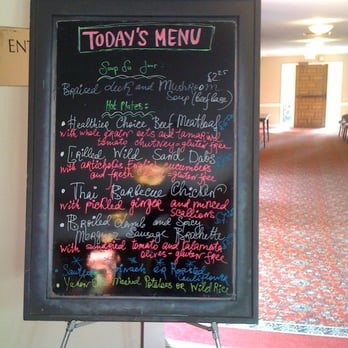 ENT
TODAY'S MENU
Soup Du Jour:
Braised duck and Mushroom $2.25
Soup (Beef base)
Hot Plates:
• Healthier Choice Beef Meatloaf
with whole grain oats and tamarind
tomato chutney - gluten free
• Grilled Wild Sand Dabs
with artichokes, English cucumbers
and fresh - gluten free
• Thai Barbecue Chicken
with pickled ginger and minced
scallions
• Broiled Lamb and Spicy
Sausage Brochette
with sundried tomato and kalamata
olives - gluten free
Spinach Roasted
Cauliflower
Yukon Mashed Potatoes or Wild Rice